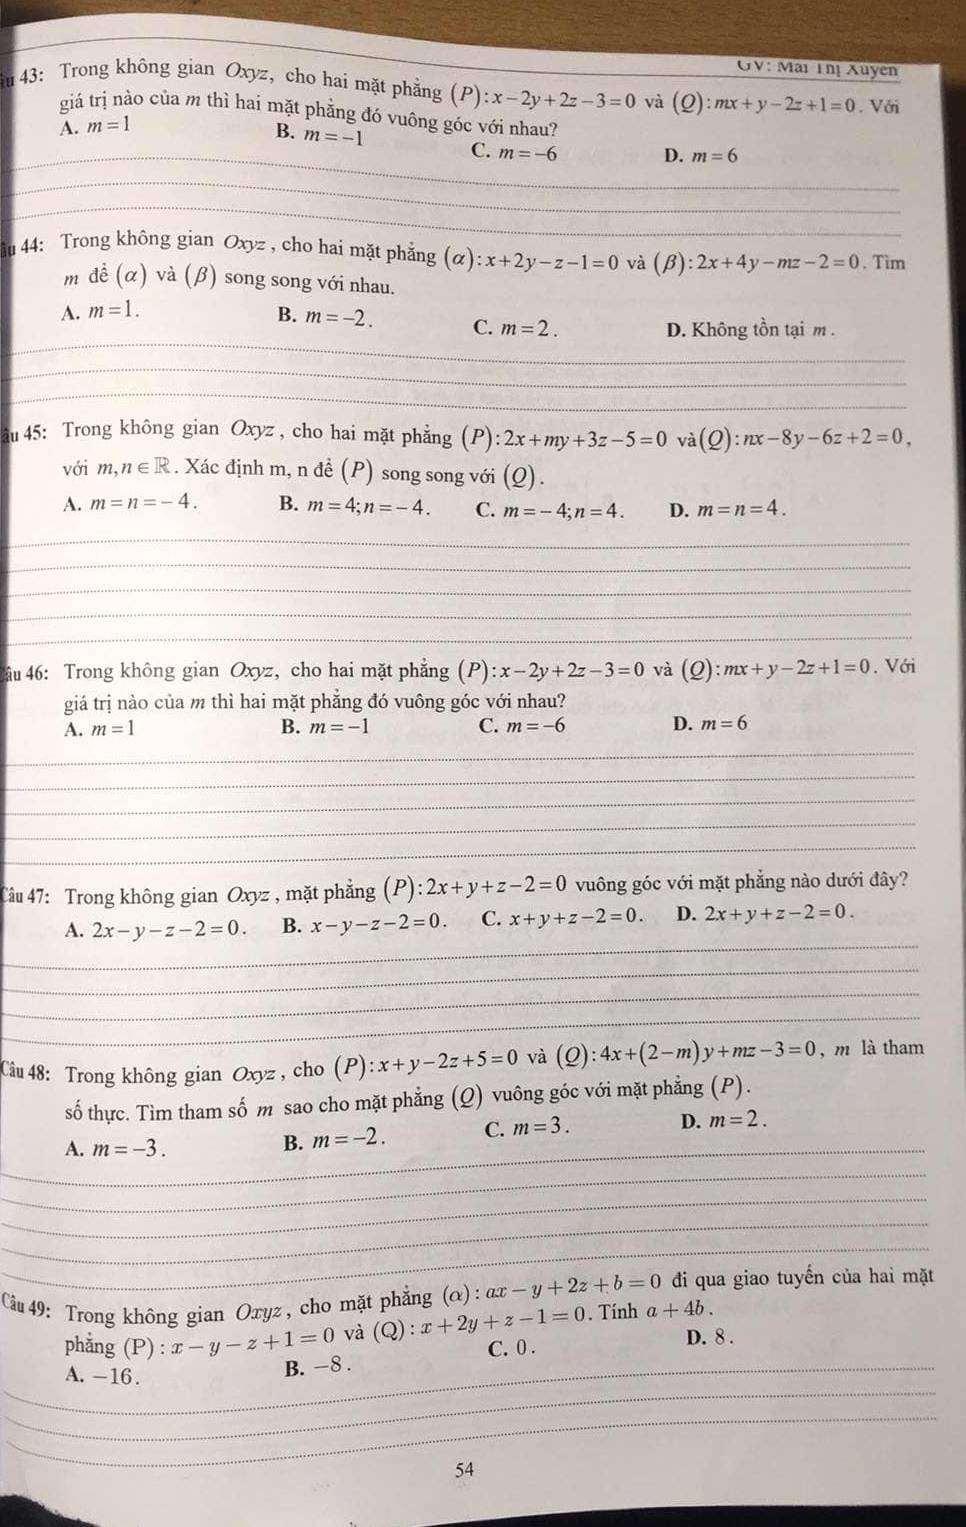 GV: Mai Thị Xuyến
43: Trong không gian Oxyz, cho hai mặt phẳng (P): x − 2y + 2z − 3 = 0 và (Q): mx + y − 2z + 1 = 0. Với
giá trị nào của m thì hai mặt phẳng đó vuông góc với nhau?
A. m = 1 B. m = −1 C. m = −6 D. m = 6
44: Trong không gian Oxyz , cho hai mặt phẳng (α): x + 2y − z − 1 = 0 và (β): 2x + 4y − mz − 2 = 0. Tìm
m để (α) và (β) song song với nhau.
A. m = 1. B. m = −2. C. m = 2. D. Không tồn tại m.
45: Trong không gian Oxyz , cho hai mặt phẳng (P): 2x + my + 3z − 5 = 0 và (Q): nx − 8y − 6z + 2 = 0,
với m, n ∈ ℝ. Xác định m, n để (P) song song với (Q).
A. m = n = − 4. B. m = 4; n = − 4. C. m = − 4; n = 4. D. m = n = 4.
Câu 46: Trong không gian Oxyz, cho hai mặt phẳng (P): x − 2y + 2z − 3 = 0 và (Q): mx + y − 2z + 1 = 0. Với
giá trị nào của m thì hai mặt phẳng đó vuông góc với nhau?
A. m = 1 B. m = −1 C. m = −6 D. m = 6
Câu 47: Trong không gian Oxyz , mặt phẳng (P): 2x + y + z − 2 = 0 vuông góc với mặt phẳng nào dưới đây?
A. 2x − y − z − 2 = 0. B. x − y − z − 2 = 0. C. x + y + z − 2 = 0. D. 2x + y + z − 2 = 0.
Câu 48: Trong không gian Oxyz , cho (P): x + y − 2z + 5 = 0 và (Q): 4x + (2 − m)y + mz − 3 = 0, m là tham
số thực. Tìm tham số m sao cho mặt phẳng (Q) vuông góc với mặt phẳng (P).
A. m = −3. B. m = −2. C. m = 3. D. m = 2.
Câu 49: Trong không gian Oxyz , cho mặt phẳng (α): ax − y + 2z + b = 0 đi qua giao tuyến của hai mặt
phẳng (P): x − y − z + 1 = 0 và (Q): x + 2y + z − 1 = 0. Tính a + 4b.
A. −16. B. −8. C. 0. D. 8.
54